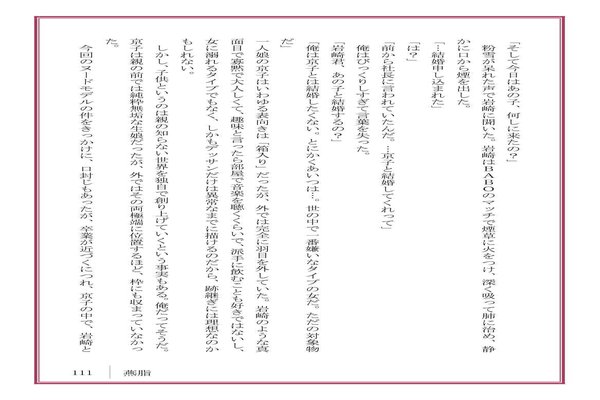 「そして今日はあの子、何しに来たの？」
粉雪が呆れた声で岩崎に聞いた。岩崎はＢＡＢＯのマッチで煙草に火をつけ、深く吸って肺に治め、静
かに口から煙を出した。
「…結婚申し込まれた」
「は？」
「前から社長に言われていたんだ。…京子と結婚してくれって」
俺はびっくりしすぎて言葉を失った。
「岩崎君、あの子と結婚するの？」
「俺は京子とは結婚したくない。とにかくあいつは…。世の中で一番嫌いなタイプの女だ。ただの対象物
だ」
一人娘の京子はいわゆる表向きは「箱入り」だったが、外では完全に羽目を外していた。岩崎のような真
面目で寡黙で大人しくて、趣味と言ったら部屋で音楽を聴くくらいで、派手に飲むことも好きではないし、
女に溺れるタイプでもなく、しかもデッサンだけは異常なまでに描けるのだから、跡継ぎには理想なのか
もしれない。
しかし、子供というのは親の知らない世界を独自で創り上げていくという事実もある。俺だってそうだ。
京子は親の前では純粋無垢な生娘だったが、外ではその両極端に位置するほど、枠にも収まっていなかっ
た。
今回のヌードモデルの件をきっかけに、口封じもあったが、卒業が近づくにつれ、京子の中で、岩崎と
111
燕脂